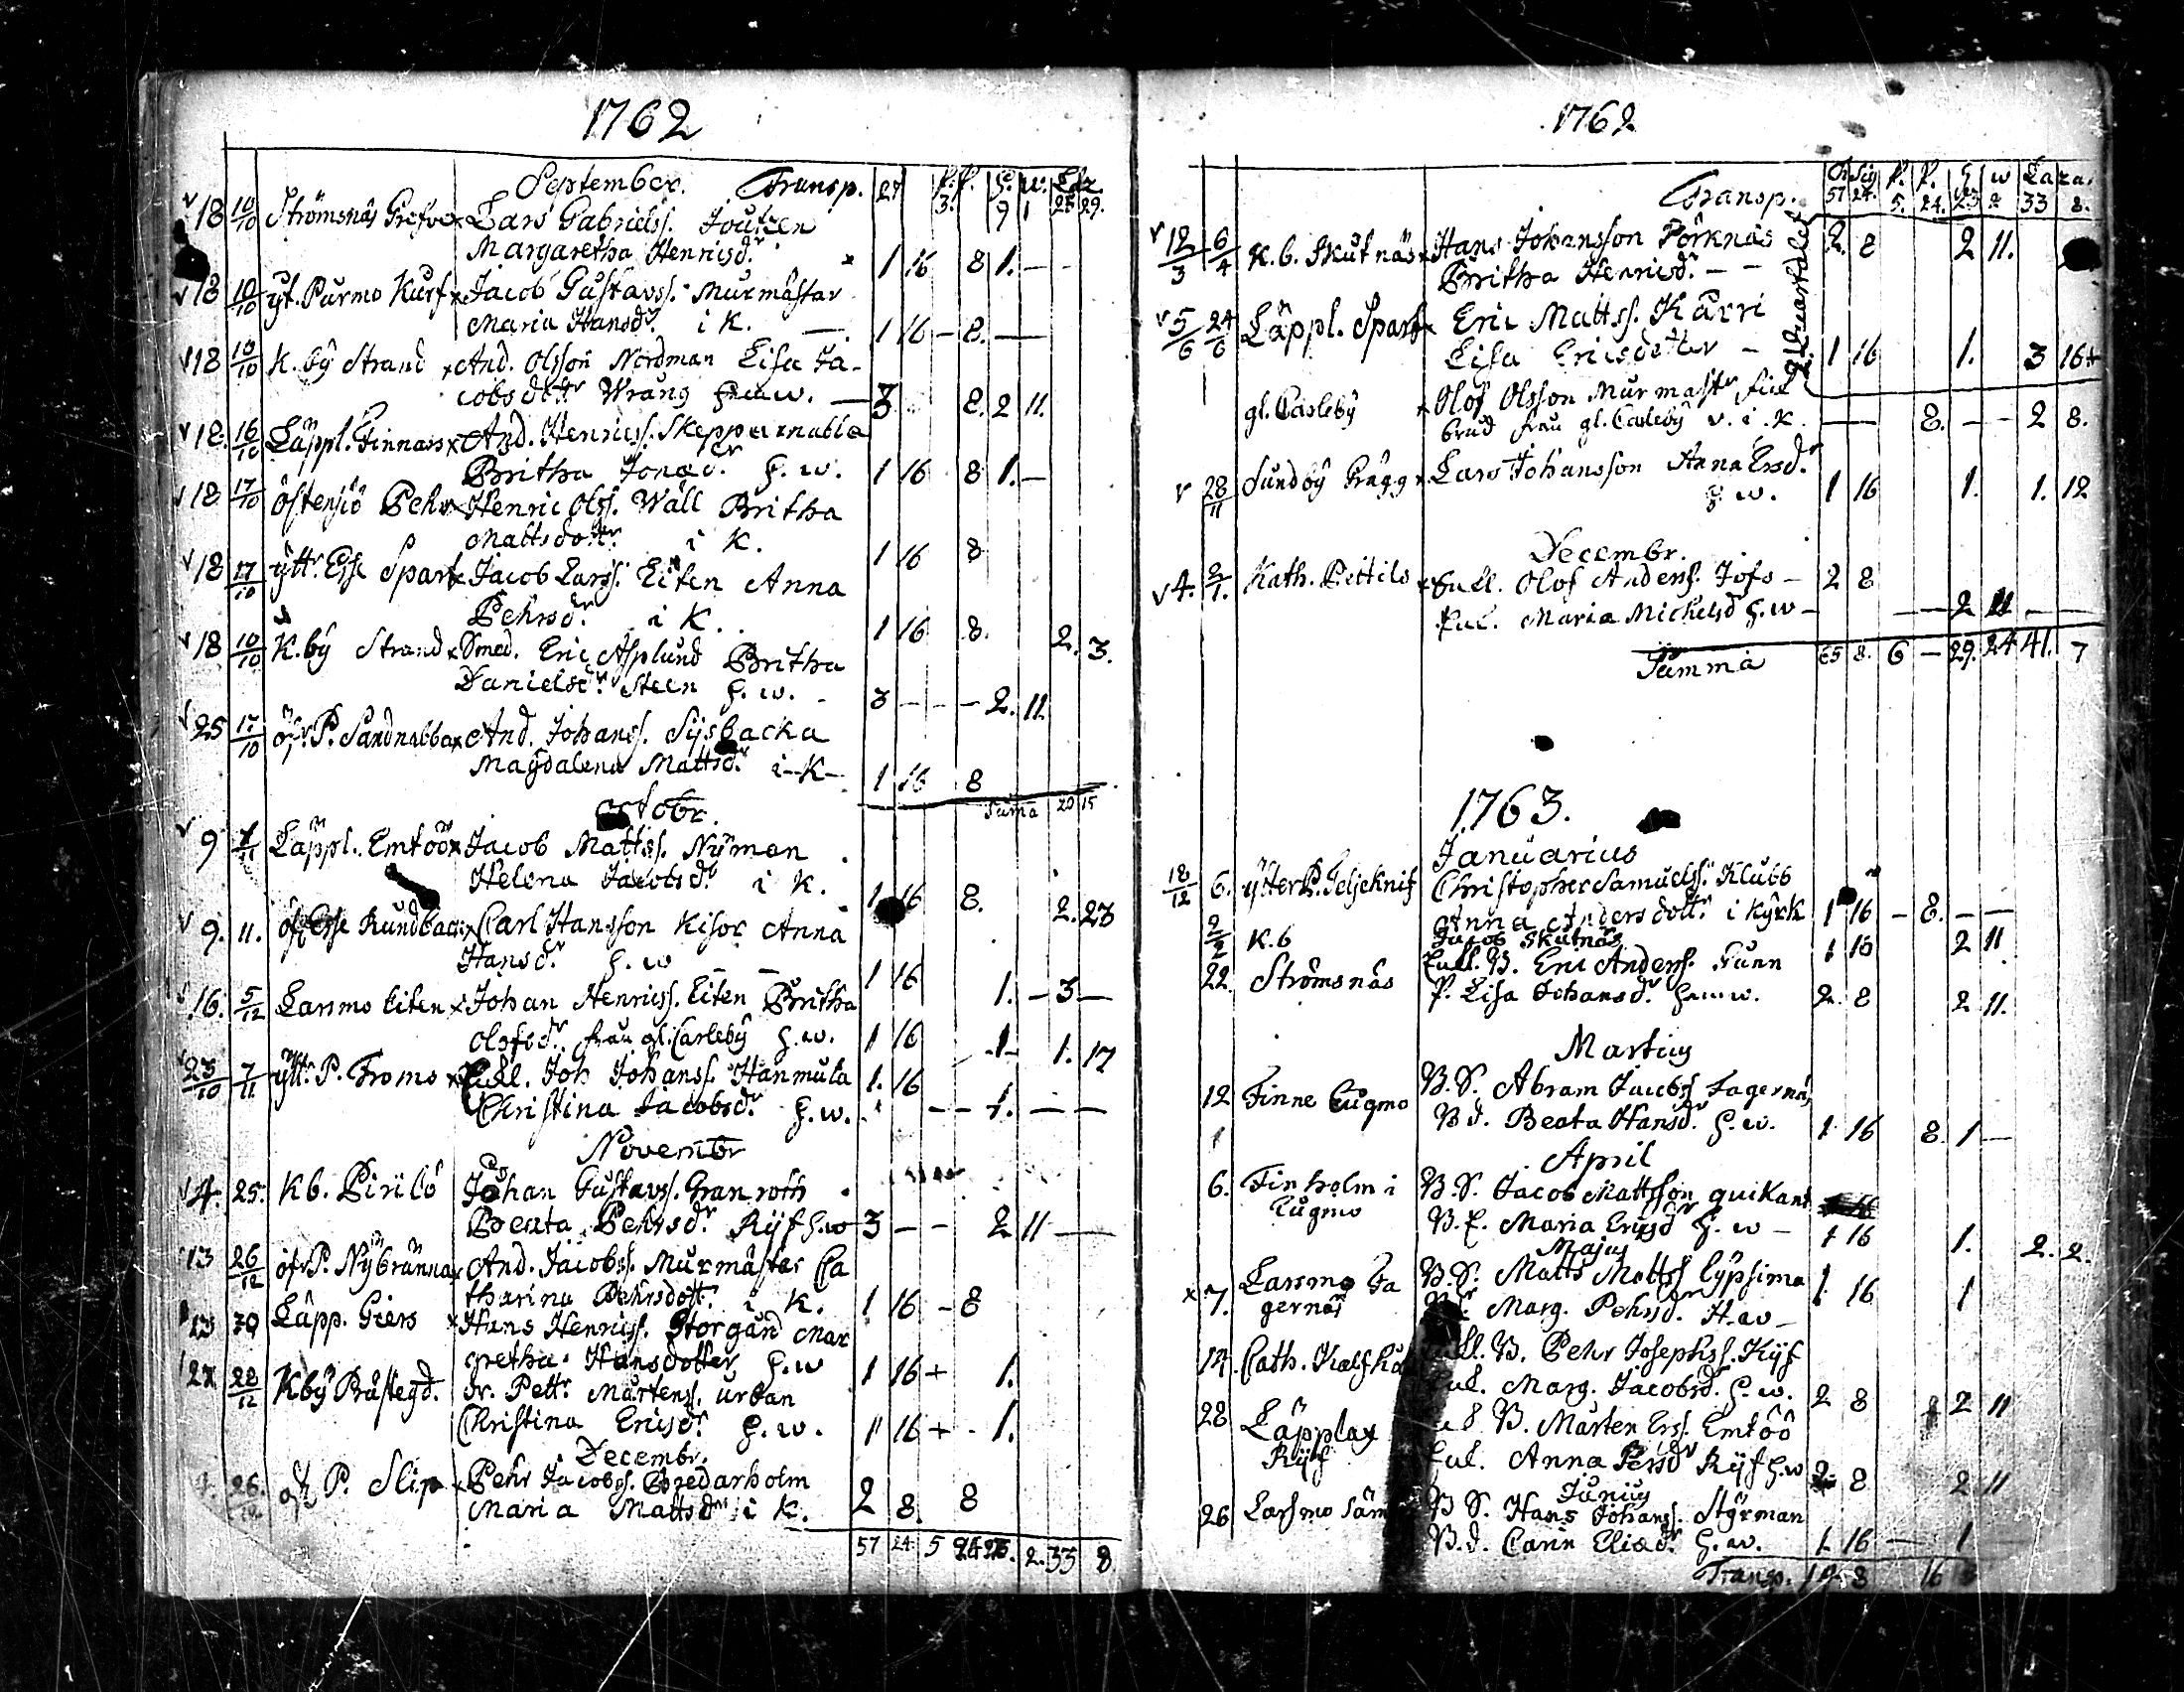 1762
September. Transp. 27 3. 9 1 27 29.
v 18 10/10 Strömsnäs Grefve x Lars Gabrielss. Joutzen
Margaretha Henricsdr. 1 16 8 1. — -
v 18 10/10 yt. Purmo Kurf x Jacob Gustavss. Murmästar
Maria Hansdr. i K. — 1 16 - 8. —
v 18 10/10 K.by Strand x And. Olsson Nordman Lisa Ja-
cobsdottr Wrang h.w. — 3. 8. 2 11.
v 18. 16/10 Läppl. Finnas x And. Henricss. Skepparnabba
Britha Jonædr. h.w. 1 16 8 1. —
v 18 17/10 östensiö Pehr x Henric Olss. Wäll Britha
Mattsdottr. i K. 1 16 8
v 18 17/10 yttr. Esse Spart x Jacob Larss. Eiten Anna
Pehrsdr. i K. 1 16 8. 2. 3.
v 18 10/10 K.by Strand x Smed. Eric Asplund Britha
Danielsdr. Steen h.w. 3 — - - 2. 11.
25 17/10 öfr. P. Sandnabba x And. Johanss. Sysbacka
Magdalena Mattsdr. i K 1 16 8
Octobr. Suma 20 15
v 9 7/11 Läppl. Emtöö x Jacob Mattss. Nyman
Helena Jacobsdr. i K. 1 16 8. 2. 23
v 9. 11. öfr Esse Rundbac x Carl Hansson Kisor Anna
Hansdr. h.w 1 16
16. 5/12 Larsmo Eiten x Johan Henricss. Eiten Britha 1. - 3. —
Olofsdr. frau gl. Carleby h.w. 1 16
23/10 7/11 yttr. P. Froms x Enkl. Joh Johanss. Hanmula 1. 16 1 1. 17
Christina Jacobsdr. h.w. - - 1. — —
Novembr
v 4. 25. K b. Pirilö Johan Gustavss. Granroth
Beata Pehrsdr. Ryss h.w 3 — - 2 11 —
13 26/12 öfr P. Nybränna x And. Jacobss. Murmästar Ca
tharina Pehrsdottr. i K. 1 16 - 8
13 30 Läpp. Giers x Hans Henricss. Storgård Mar
gretha Hansdotter h.w 1 16 + 1.
27 28/12 Kby Prästegd. dr. Pettr Mårtenss. Urban
Christina Ericsdr. h.w. 1 16 + 1.
Decembr.
26./12 öfr P. Slip x Pehr Jacobss. Bredarholm
Maria Mattsdr i K. 2 8. 8
57 24. 5 2. 33 8
1762
Transp. 57 24. 5. 24. 23 2 33 8.
2 Quartalet
v 12/3 6/4 K.b. Skutnäs x Hans Johansson Pörknäs 2. 8 2 11.
Britha Henricsdr. - -
v 5/6 24/6 Läppl. Spart x Eric Mattss. Karri
Lisa Ericsdotter - 1 16 1. 3 16 +
gl. Carleby x Olof Olsson Murmastr
brud frau gl. Carleby v. i K. — 8. — - 2 8.
v 28/11 Sundby Prägg x Lars Johansson Anna Ersdr.
h w. 1 16 1. 1. 12
Decembr.
v 4. 2/1. Kath. Pettils x Enkl. Olof Anderss. Jofs - 2 8
Enk. Maria Michelsd h.w - — 2 11 —
Summa 65 8. 6 - 29. 24 41. 7
1763.
Januarius
18/12 6. ytter P. Teljeknif Christopher Samuelss. Klubb
Anna Andersdottr. i Kyrk 1 16 - 8. — —
2/2 K.b Jacob Skutnäs 1 16 2 11
22. Strömsnäs Enkl. B. Eric Anderss. Funn
P. Lisa Johansdr. h.w. 2. 8 2 11.
Martius
12 Finne Eugmo B.S. Abram Jacobss Fagernäs
B d. Beata Hansdr. h.w. 1 16 8. 1 —
April
6. Finholm i B.S. Jacob Mattsson quikant
Eugmo B. E. Maria Ericsd h.w - 1 16 1. 2. 2.
Majus
x 7. Larsmo Fa B.S. Matts Matts Cypsima 1. 16 1
gernäs Marg. Pehrsdr. H.w -
14. Cath. Kalfhå B. Pehr Josephss. Kyf
Marg. Jacobsd. h.w. 2 8 2 11
28 Läpplax B. Mårten Erss. Emtöö
Ryss Enk. Anna Persdr Ryss h.w 2 8 2 11
Junius
26 Larsmo B S. Hans Johanss. Styrman
B.d. Carin Eliædr. h.w. 1. 16 — 1
Transp. 8 16